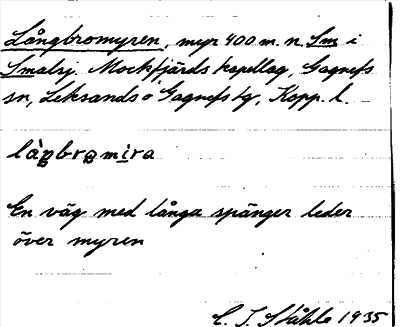 Långbromyren, myr 400 m. n. Sm i
Smalsj. Mockfjärds kapellag, Gagnefs
sn, Leksands o Gagnefs tg, Kopp. l.
En väg med långa spänger leder
över myren
C. I. Ståhle 1935